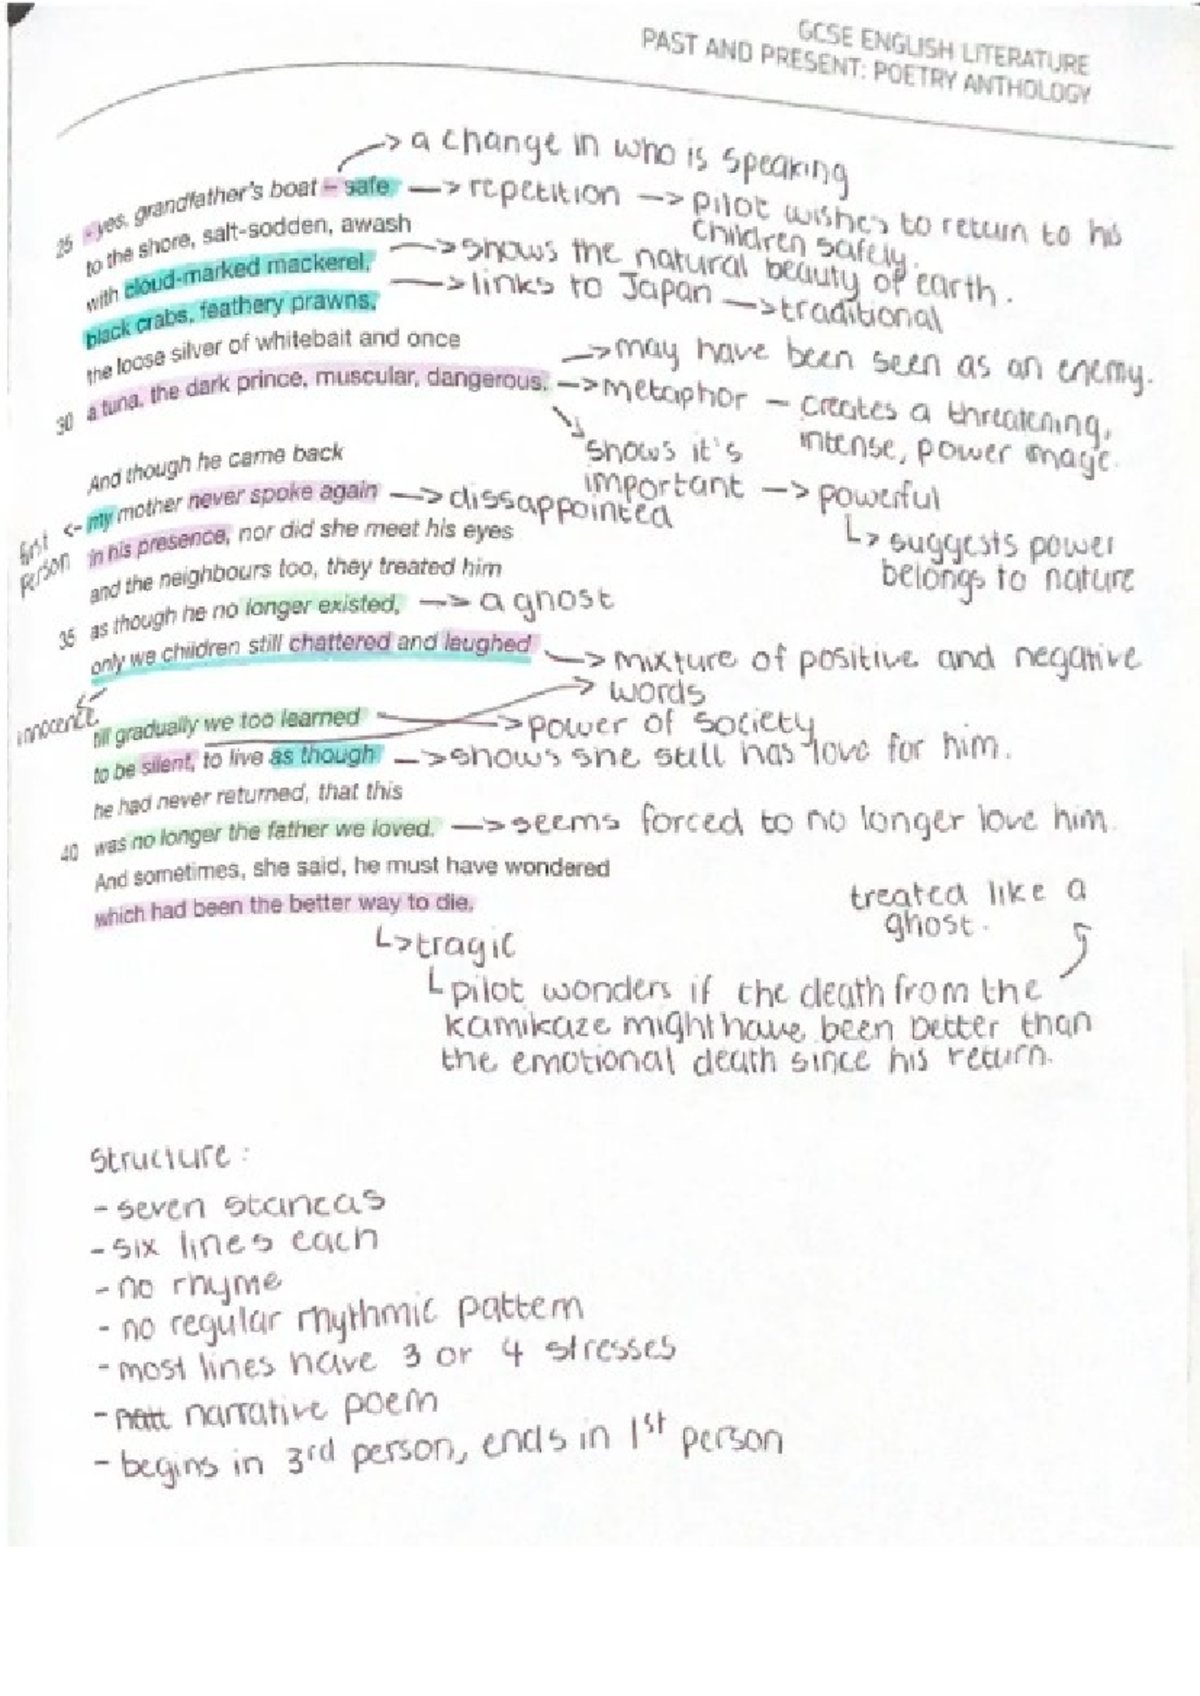 GCSE ENGLISH LITERATURE
PAST AND PRESENT: POETRY ANTHOLOGY
-> a change in who is speaking
25 - yes, grandfather's boat – safe -> repetition -> pilot wishes to return to his children safely.
to the shore, salt-sodden, awash
with cloud-marked mackerel, -> shows the natural beauty of earth.
black crabs, feathery prawns, -> links to Japan -> traditional
the loose silver of whitebait and once
-> may have been seen as an enemy.
30 a tuna, the dark prince, muscular, dangerous. -> metaphor - creates a threatening, intense, power image.
shows it's important -> powerful
↳ suggests power belongs to nature
And though he came back
first person <- my mother never spoke again -> dissappointed
in his presence, nor did she meet his eyes
and the neighbours too, they treated him
35 as though he no longer existed, -> a ghost
only we children still chattered and laughed -> mixture of positive and negative
-> words
innocence
till gradually we too learned -> power of society
to be silent, to live as though -> shows she still has love for him.
he had never returned, that this
40 was no longer the father we loved. -> seems forced to no longer love him.
And sometimes, she said, he must have wondered
which had been the better way to die.
treated like a
ghost.
↳ tragic
↳ pilot wonders if the death from the
kamikaze might have been better than
the emotional death since his return.
Structure:
- seven stanzas
- six lines each
- no rhyme
- no regular rhythmic pattern
- most lines have 3 or 4 stresses
- narrative poem
- begins in 3rd person, ends in 1st person